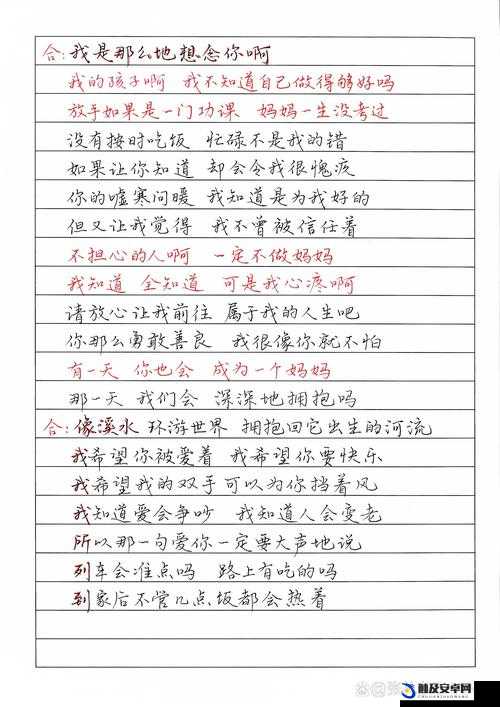 合：我是那么地想念你啊
我的孩子啊 我不知道自己做得够好吗
放手如果是一门功课 妈妈一生没考过
没有按时吃饭 忙碌不是我的错
如果让你知道 却会令我很愧疚
你的嘘寒问暖 我知道是为我好的
但又让我觉得 我不曾被信任着
不担心的人啊 一定不做妈妈
我知道 全知道 可是我心疼啊
请放心让我前往 属于我的人生吧
你那么勇敢善良 我很像你就不怕
有一天 你也会 成为一个妈妈
那一天 我们会 深深地拥抱吗
合：像溪水 环游世界 拥抱回它出生的河流
我希望你被爱着 我希望你要快乐
我希望我的双手可以为你挡着风
我知道爱会争吵 我知道人会变老
所以那一句爱你一定要大声地说
列车会准点吗 路上有吃的吗
到家后不管几点饭都会热着
触及安卓网